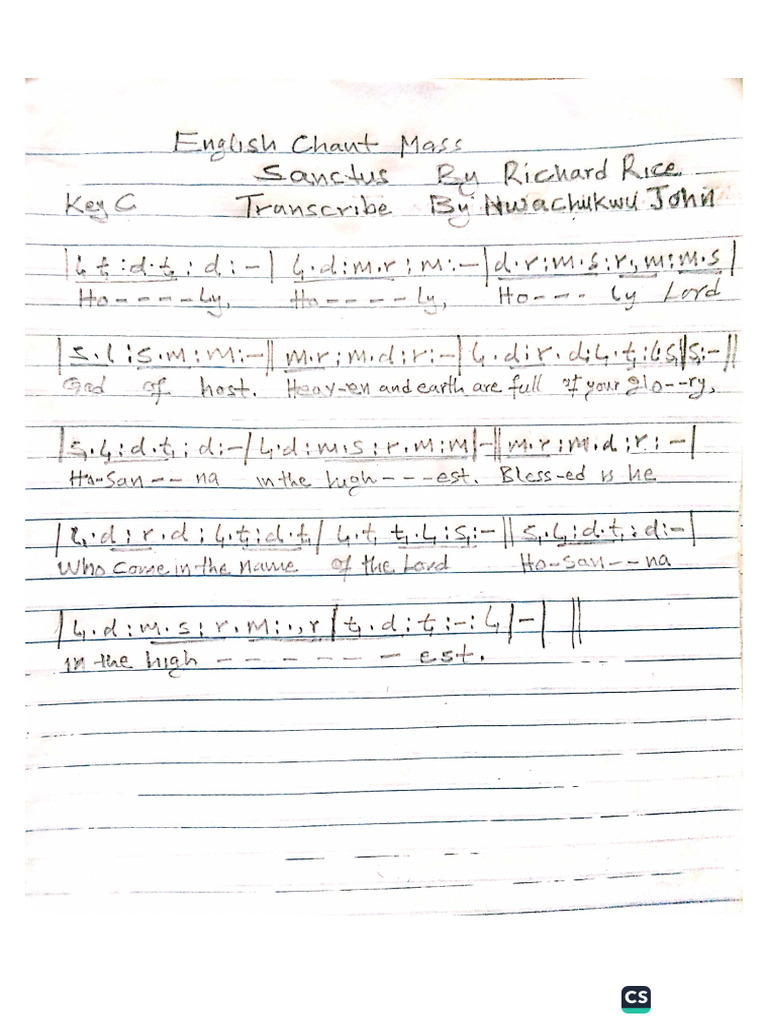 English Chant Mass
Sanctus By Richard Rice.
Key C Transcribe By Nwachukwu John
|l₁ t₁ : d . t₁ ; d : – | l₁ . d : m . r ; m : – | d . r ; m . s ; r , m ; m . s |
Ho - - - - ly, Ho - - - - ly, Ho - - - ly Lord
| s . l ; s . m ; m : – || m . r ; m . d ; r : – | l₁ . d ; r . d ; l₁ . t₁ ; l₁ s₁ || s₁ : – ||
God of host. Heav-en and earth are full of your glo - - ry,
| s₁ . l₁ ; d . t₁ ; d : – | l₁ . d : m . s ; r . m ; m | – || m . r ; m . d ; r : – |
Ho-san - - na in the high - - - est. Bless-ed is he
| l₁ . d ; r . d ; l₁ . t₁ ; d . t₁ | l₁ . t₁ t₁ . l₁ ; s₁ : – || s₁ . l₁ ; d . t₁ ; d : – |
Who come in the name of the Lord Ho-san - - na
| l₁ . d : m . s ; r . m : . , r | t₁ . d ; t₁ : – : l₁ | – | ||
in the high - - - - - - est.
CS